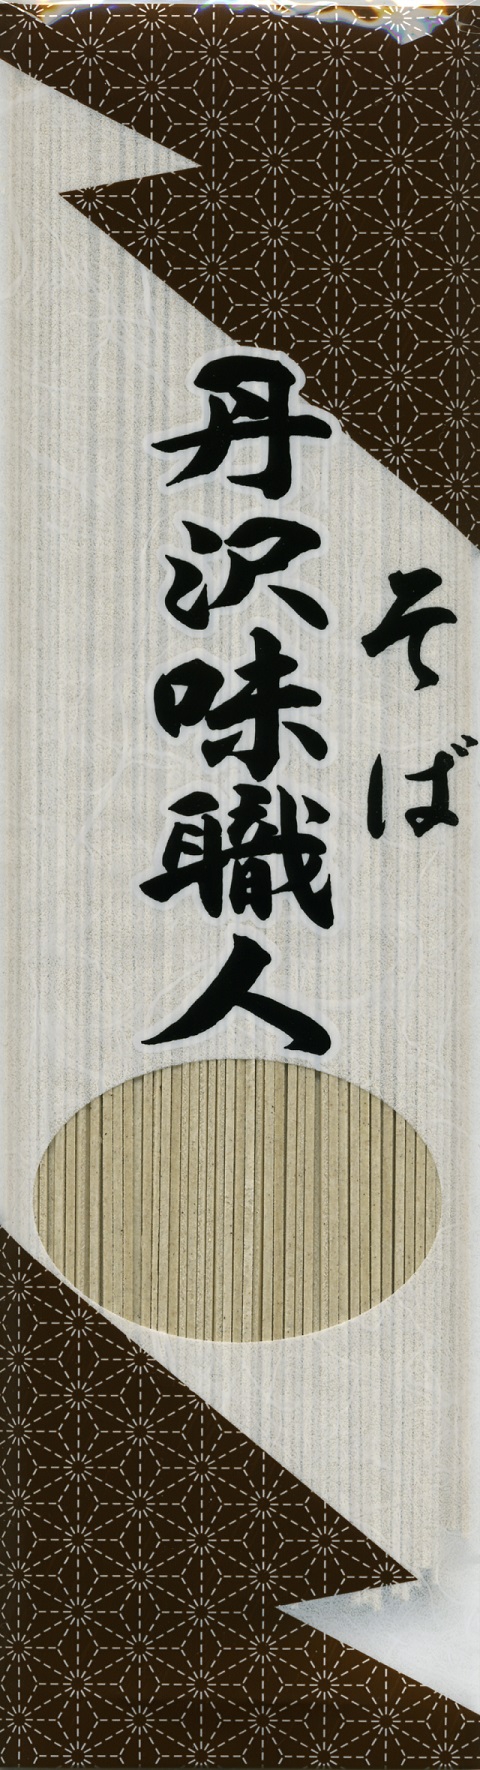 そば
丹沢味職人